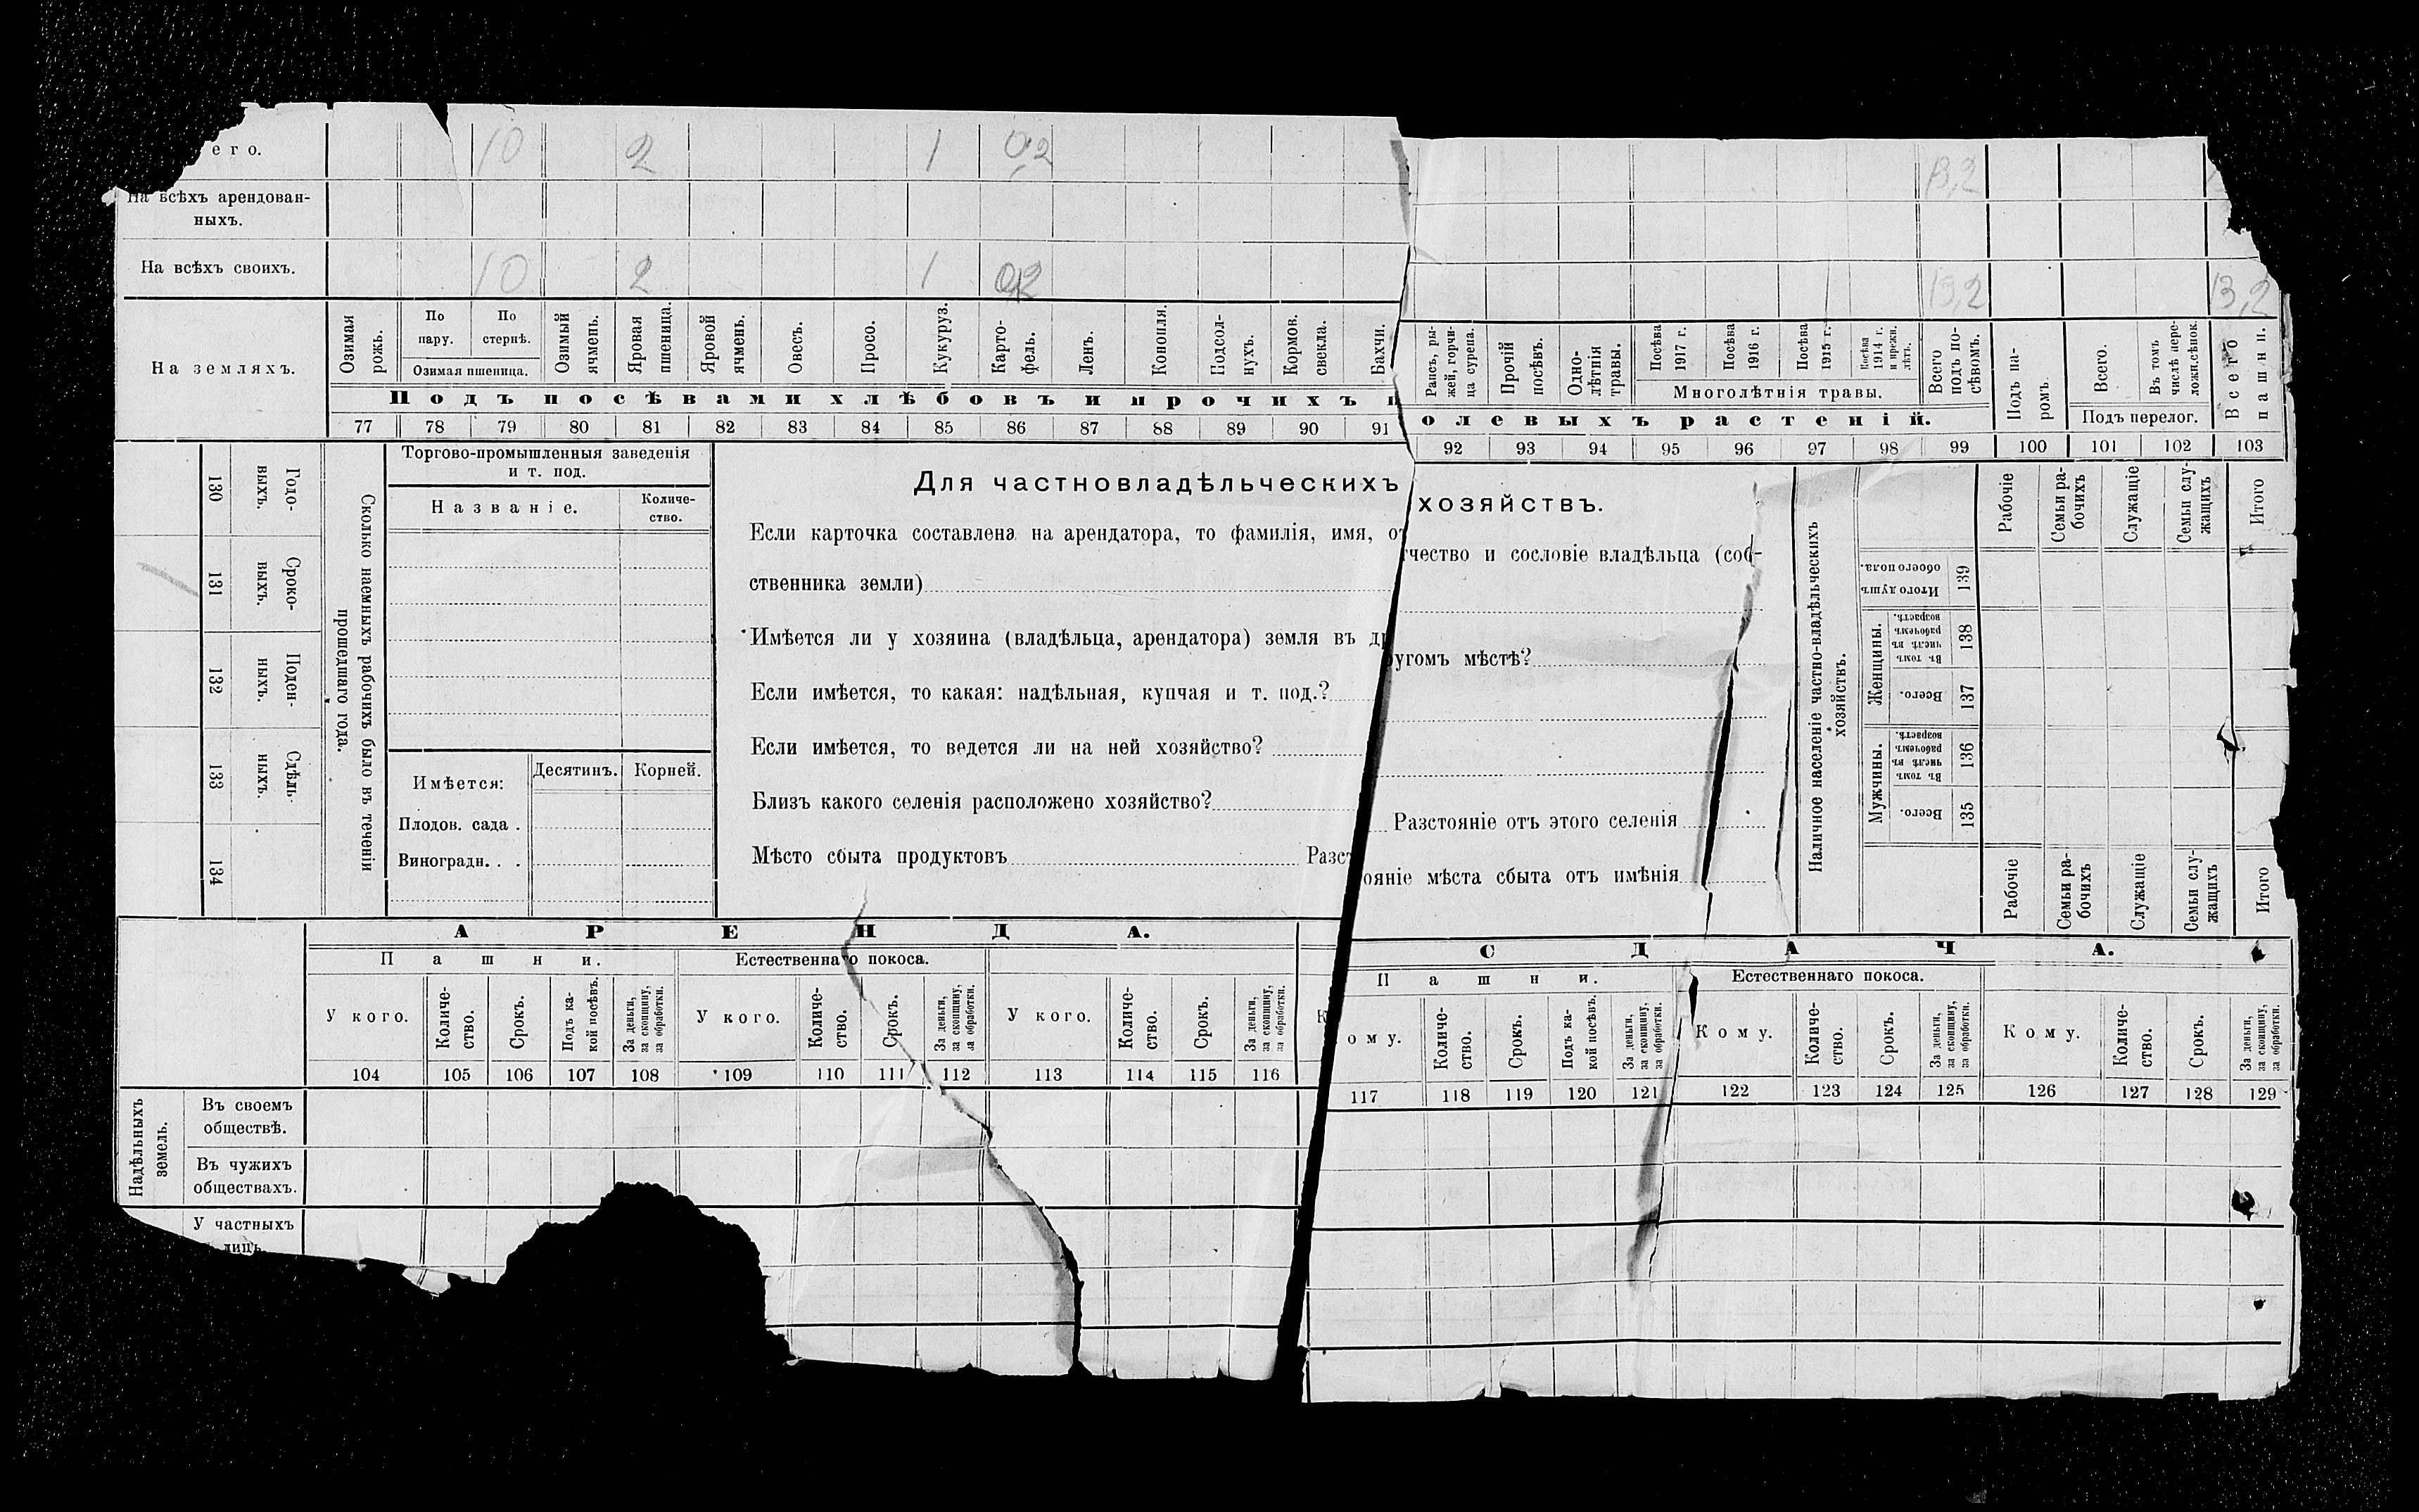 его. 10 2 1 0,2 13,2
На всѣхъ арендован-
ныхъ.
На всѣхъ своихъ. 10 2 1 0,2 13,2 13,2
На земляхъ.
Озимая рожь.
По пару.
По стернѣ.
Озимая пшеница.
Озимый ячмень.
Яровая пшеница.
Яровой ячмень.
Овесъ.
Просо.
Кукуруз.
Карто-
фель.
Ленъ.
Конопля.
Подсол-
нухъ.
Кормов. свекла.
Бахчи.
Рапсъ, ры-
жей, горчи-
ца сурепа.
Прочій посѣвъ.
Одно-
лѣтнія травы.
Посѣва 1917 г.
Посѣва 1916 г.
Посѣва 1915 г.
Посѣва 1914 г. и прежн. лѣтъ.
Многолѣтнія травы.
Всего подъ по-
сѣвомъ.
Подъ па-
ромъ.
Всего.
Въ томъ числѣ пере-
ложн. сѣнок.
Подъ перелог.
Всего пашни.
Подъ посѣвами хлѣбовъ и прочихъ полевыхъ растеній.
77 78 79 80 81 82 83 84 85 86 87 88 89 90 91 92 93 94 95 96 97 98 99 100 101 102 103
130 131 132 133 134
Годо-
выхъ.
Сроко-
ныхъ.
Поден-
ныхъ.
Сдѣль-
ныхъ.
Сколько наемныхъ рабочихъ было въ теченіи
прошедшаго года.
Торгово-промышленныя заведенія
и т. под.
Названіе.
Количе-
ство.
Имѣется:
Десятинъ.
Корней.
Плодов. сада .
Виноградн. . .
Для частновладѣльческихъ хозяйствъ.
Если карточка составлена на арендатора, то фамилія, имя, отчество и сословіе владѣльца (соб-
ственника земли)
Имѣется ли у хозяина (владѣльца, арендатора) земля въ другомъ мѣстѣ?
Если имѣется, то какая: надѣльная, купчая и т. под.?
Если имѣется, то ведется ли на ней хозяйство?
Близъ какого селенія расположено хозяйство? Разстояніе отъ этого селенія
Мѣсто сбыта продуктовъ Разстояніе мѣста сбыта отъ имѣнія
Наличное населеніе частно-владѣльческихъ
хозяйствъ.
Итого душъ обоего пола. 139
Женщины.
Въ томъ числѣ въ рабочемъ возрастѣ. 138
Всего. 137
Мужчины.
Въ томъ числѣ въ рабочемъ возрастѣ. 136
Всего. 135
Рабочіе
Семьи ра-
бочихъ
Служащіе
Семьи слу-
жащихъ
Итого
Рабочіе
Семьи ра-
бочихъ
Служащіе
Семьи слу-
жащихъ
Итого
АРЕНДА.
Пашни.
Естественнаго покоса.
У кого.
Количе-
ство.
Срокъ.
Подъ ка-
кой посѣвъ.
За деньги,
за скопщину,
за обработки.
У кого.
Количе-
ство.
Срокъ.
За деньги,
за скопщину,
за обработки.
У кого.
Количе-
ство.
Срокъ.
За деньги,
за скопщину,
за обработки.
104 105 106 107 108 109 110 111 112 113 114 115 116
СДАЧА.
Пашни.
Естественнаго покоса.
Кому.
Количе-
ство.
Срокъ.
Подъ ка-
кой посѣвъ.
За деньги,
за скопщину,
за обработки.
Кому.
Количе-
ство.
Срокъ.
За деньги,
за скопщину,
за обработки.
Кому.
Количе-
ство.
Срокъ.
За деньги,
за скопщину,
за обработки.
117 118 119 120 121 122 123 124 125 126 127 128 129
Надѣльныхъ
земель.
Въ своемъ
обществѣ.
Въ чужихъ
обществахъ.
У частныхъ
лицъ.